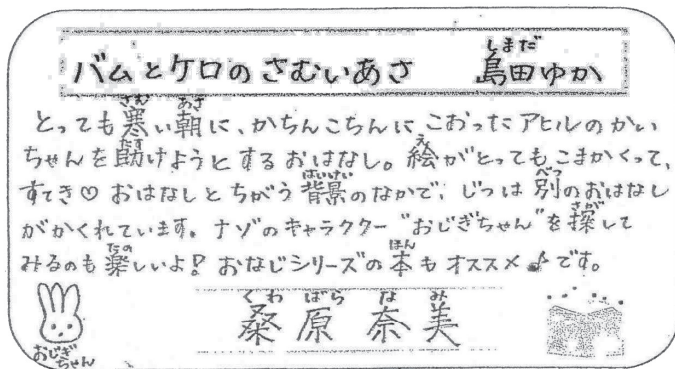 バムとケロのさむいあさ 島田ゆか
とっても寒い朝に、かちんこちんにこおったアヒルのかい
ちゃんを助けようとするおはなし。絵がとってもこまかくって、
すてき♡ おはなしとちがう背景のなかで、じつは別のおはなし
がかくれています。ナゾのキャラクター“おじぎちゃん”を探して
みるのも楽しいよ! おなじシリーズの本もオススメ♪です。
桑原奈美
おじぎ
ちゃん